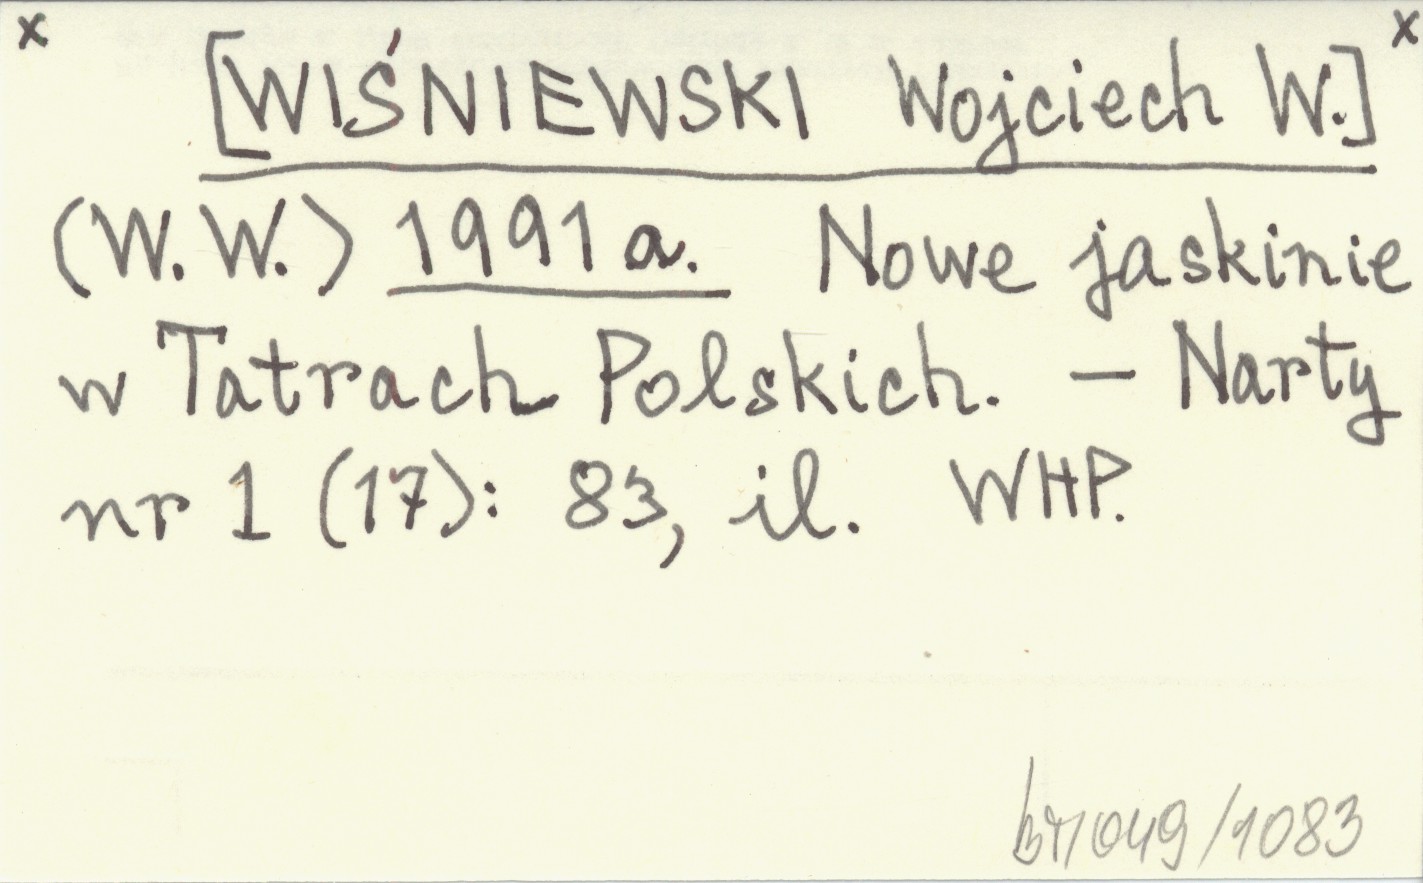 x x
[WIŚNIEWSKI Wojciech W.]
(W.W.) 1991a. Nowe jaskinie
w Tatrach Polskich. — Narty
nr 1 (17): 83, il. WHP.
/1083